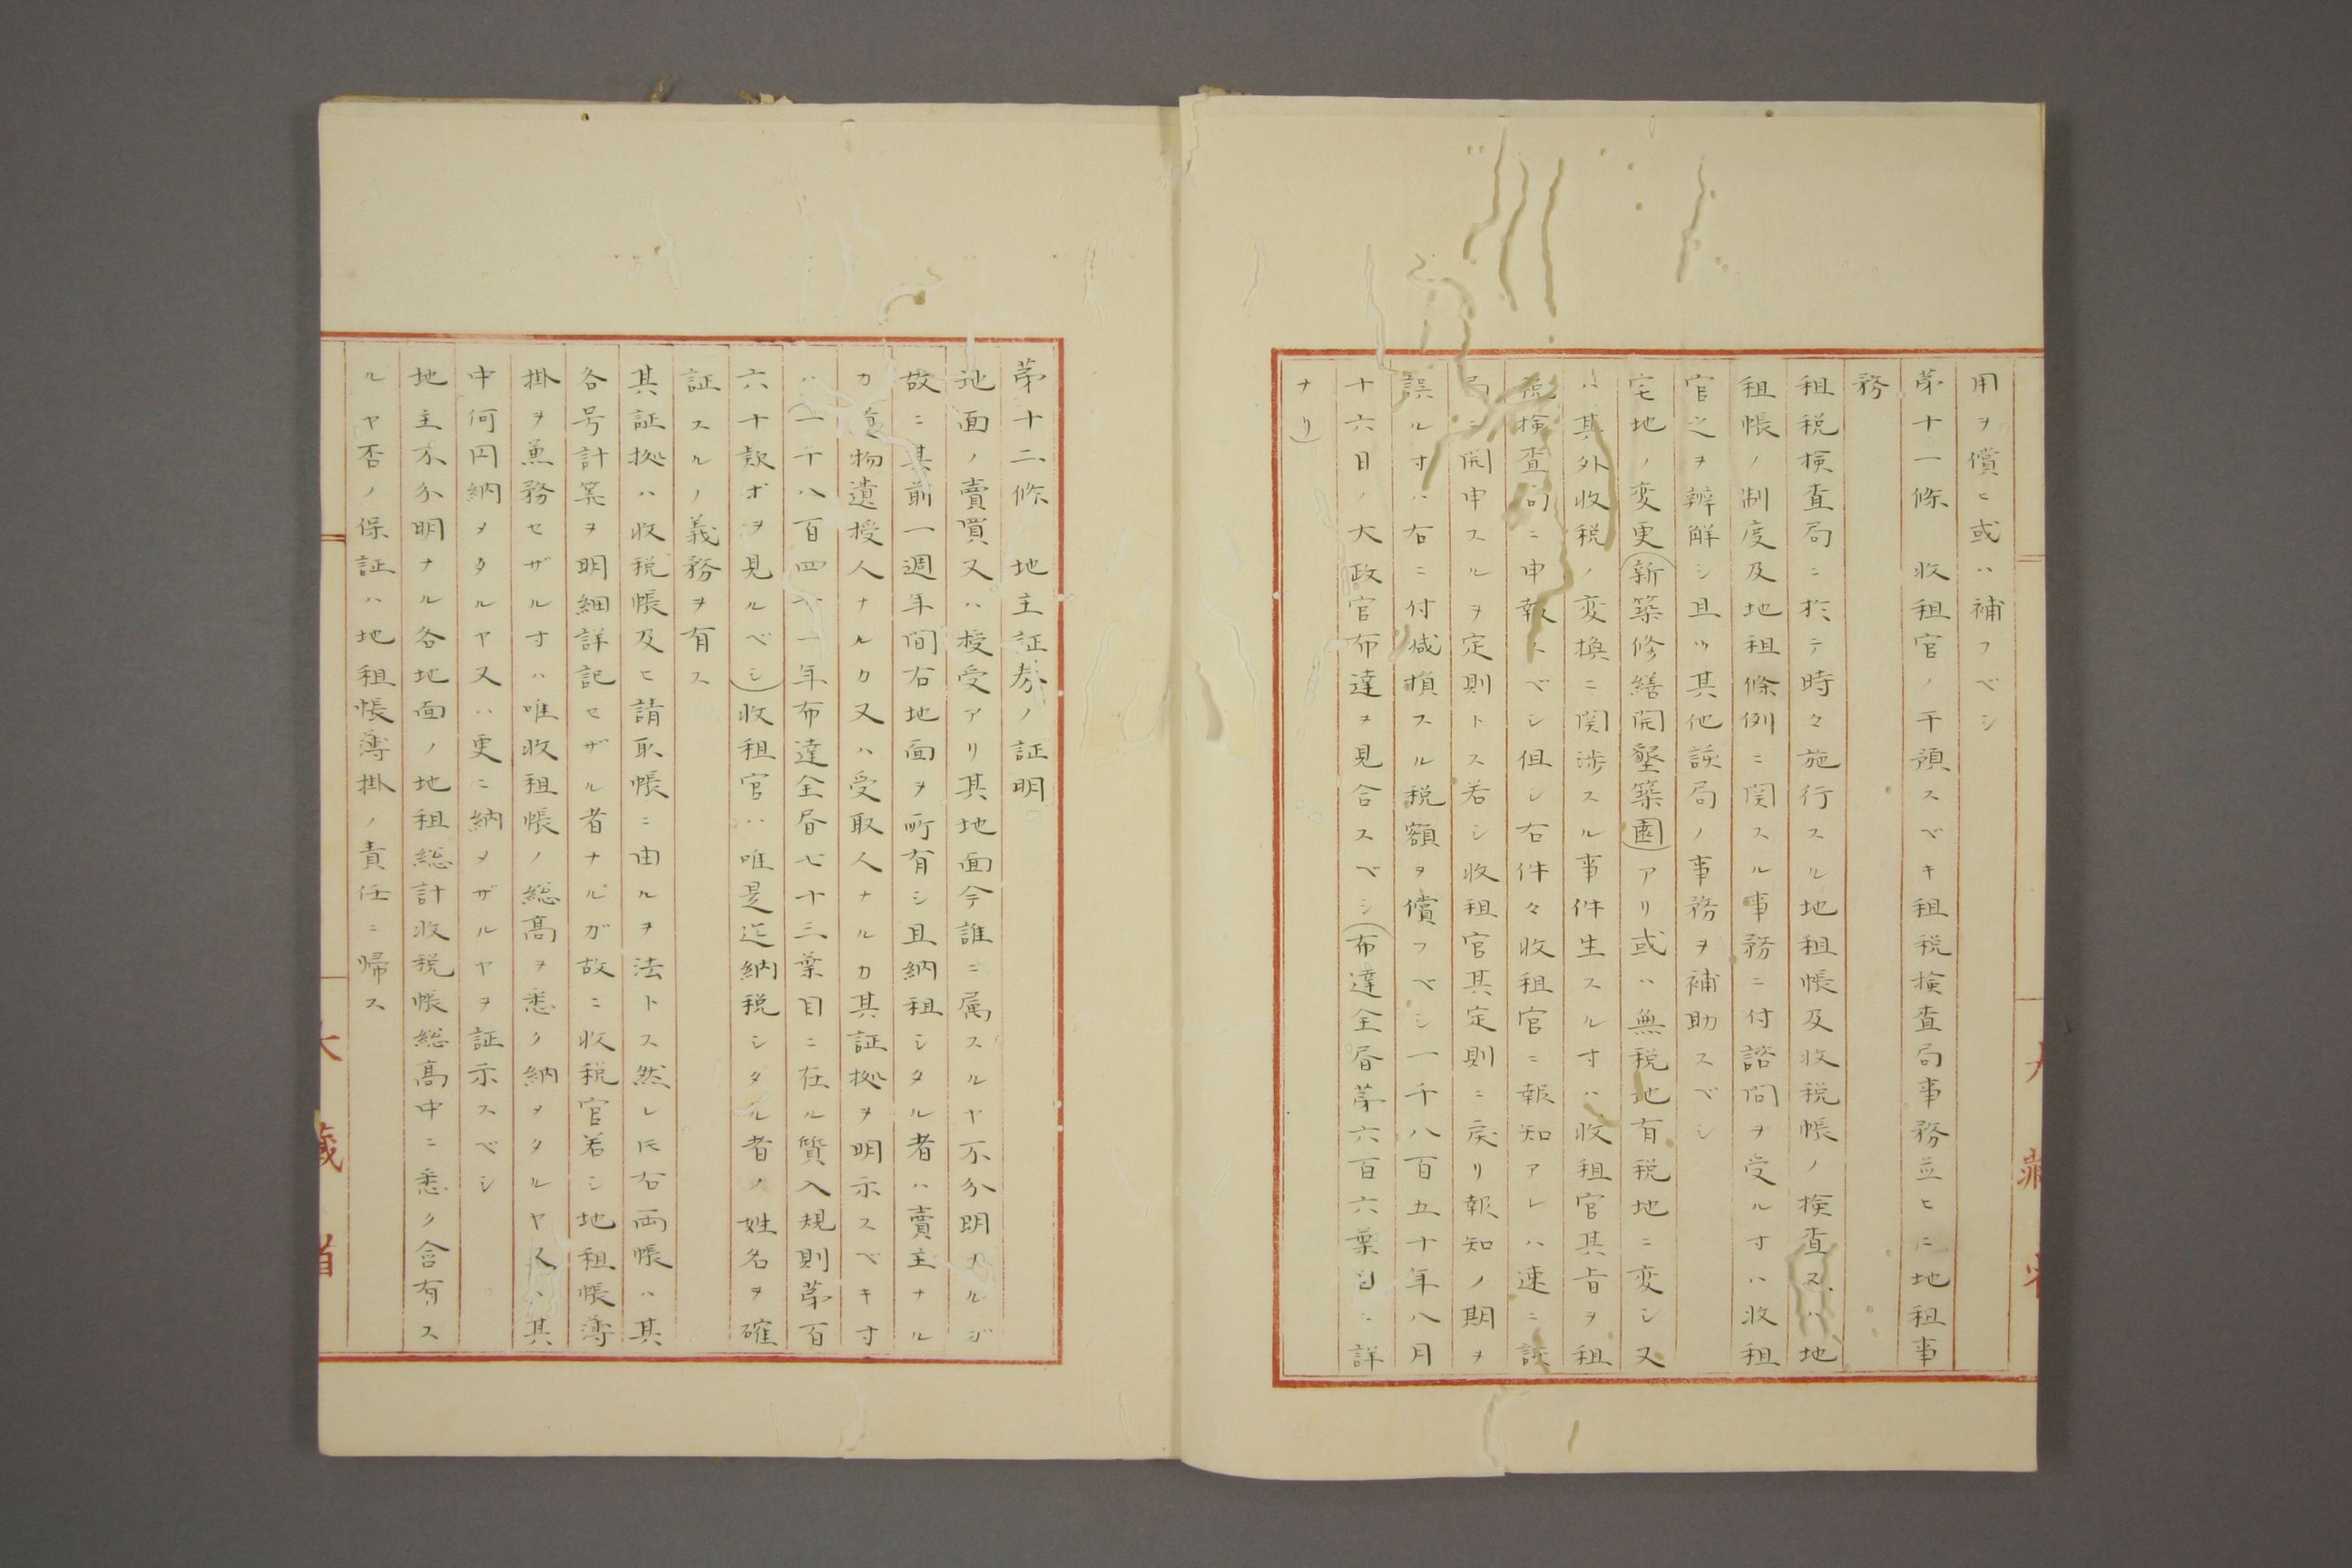 用ヲ償ヒ或ハ補フベシ
第十一條　收租官ノ干預スベキ租税検査局事務並ヒニ地租事
務
租税検査局ニ於テ時々施行スル地租帳及收税帳ノ検査又ハ地
租帳ノ制度及地租條例ニ関スル事務ニ付諮問ヲ受ルヿハ收租
官之ヲ辨解シ且ツ其他該局ノ事務ヲ補助スベシ
宅地ノ変更(新築修繕開墾築園)アリ或ハ無税地有税地ニ変シ又
ハ其外收税ノ変換ニ関渉スル事件生スルヿハ收租官其旨ヲ租
税検査局ニ申報スベシ但シ右件々收租官ニ報知アレハ速ニ該
局ニ開申スルヲ定則トス若シ收租官其定則ニ戻リ報知ノ期ヲ
誤ルヿハ右ニ付减損スル税額ヲ償フベシ一千八百五十年八月
十六日ノ大政官布達ヲ見合スベシ(布達全昏第六百六葉目ニ詳
ナリ)
第十二條　地主証券ノ証明
地面ノ賣買又ハ授受アリ其地面今誰ニ属スルヤ不分明ナルガ
故ニ其前一週年間右地面ヲ所有シ且納租シタル者ハ賣主ナル
カ物遺授人ナルカ又ハ受取人ナルカ其証拠ヲ明示スベキヿ
ハ(一千八百四十一年布達全昏七十三葉目ニ在ル質入規則第百
六十款ホヲ見ルベシ)收租官ハ唯是迄納税シタル者ノ姓名ヲ確
証スルノ義務ヲ有ス
其証拠ハ收税帳及ヒ請取帳ニ由ルヲ法トス然レ𪜈右両帳ハ其
各号計算ヲ明細詳記セザル者ナルガ故ニ收税官若シ地租帳簿
掛ヲ兼務セザルヿハ唯收租帳ノ総高ヲ悉ク納メタルヤ又ハ其
中何円納メタルヤ又ハ更ニ納メザルヤヲ証示スベシ
地主不分明ナル各地面ノ地租総計收税帳総高中ニ悉ク含有ス
ルヤ否ノ保証ハ地租帳簿掛ノ責任ニ帰ス
大藏省